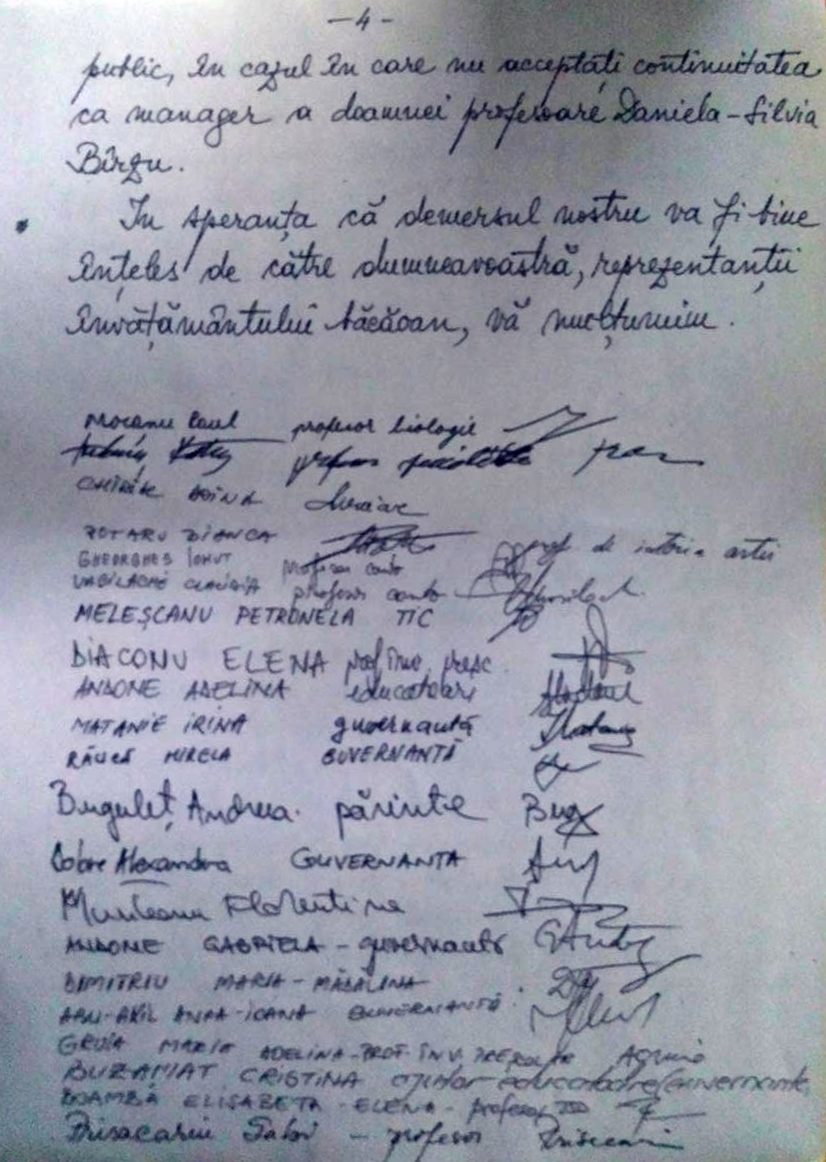 - 4 -
public, în cazul în care nu acceptați continuitatea
ca manager a doamnei profesoare Daniela-Silvia
Bîrzu.
În speranța că demersul nostru va fi bine
înțeles de către dumneavoastră, reprezentanții
învățământului băcăoan, vă mulțumim.
Mocanu Paul profesor biologie
profesor
CHIRIAC DOINA
ROTARU BIANCA prof. de istoria artei
GHEORGHEȘ IONUȚ Profesor canto
VASILACHE CLAUDIA profesor canto
MELEȘCANU PETRONELA TIC
DIACONU ELENA prof înv. presc.
ANDONE ADELINA educatoare
MATANIE IRINA guvernantă
MIRELA GUVERNANTĂ
Buguleț Andreea. părinte Bug
Cobre Alexandra GUVERNANTA
Munteanu Florentina
ANDONE GABRIELA - guvernantă
DIMITRIU MARIA - MĂDĂLINA
ANCA-IOANA GUVERNANTĂ
MARIA ADELINA-PROF. ÎNV. PREȘCOLAR
CRISTINA ajutor educatoare/Guvernanta
BOAMBĂ ELISABETA - ELENA - profesor
Prisacariu Gabi - profesor